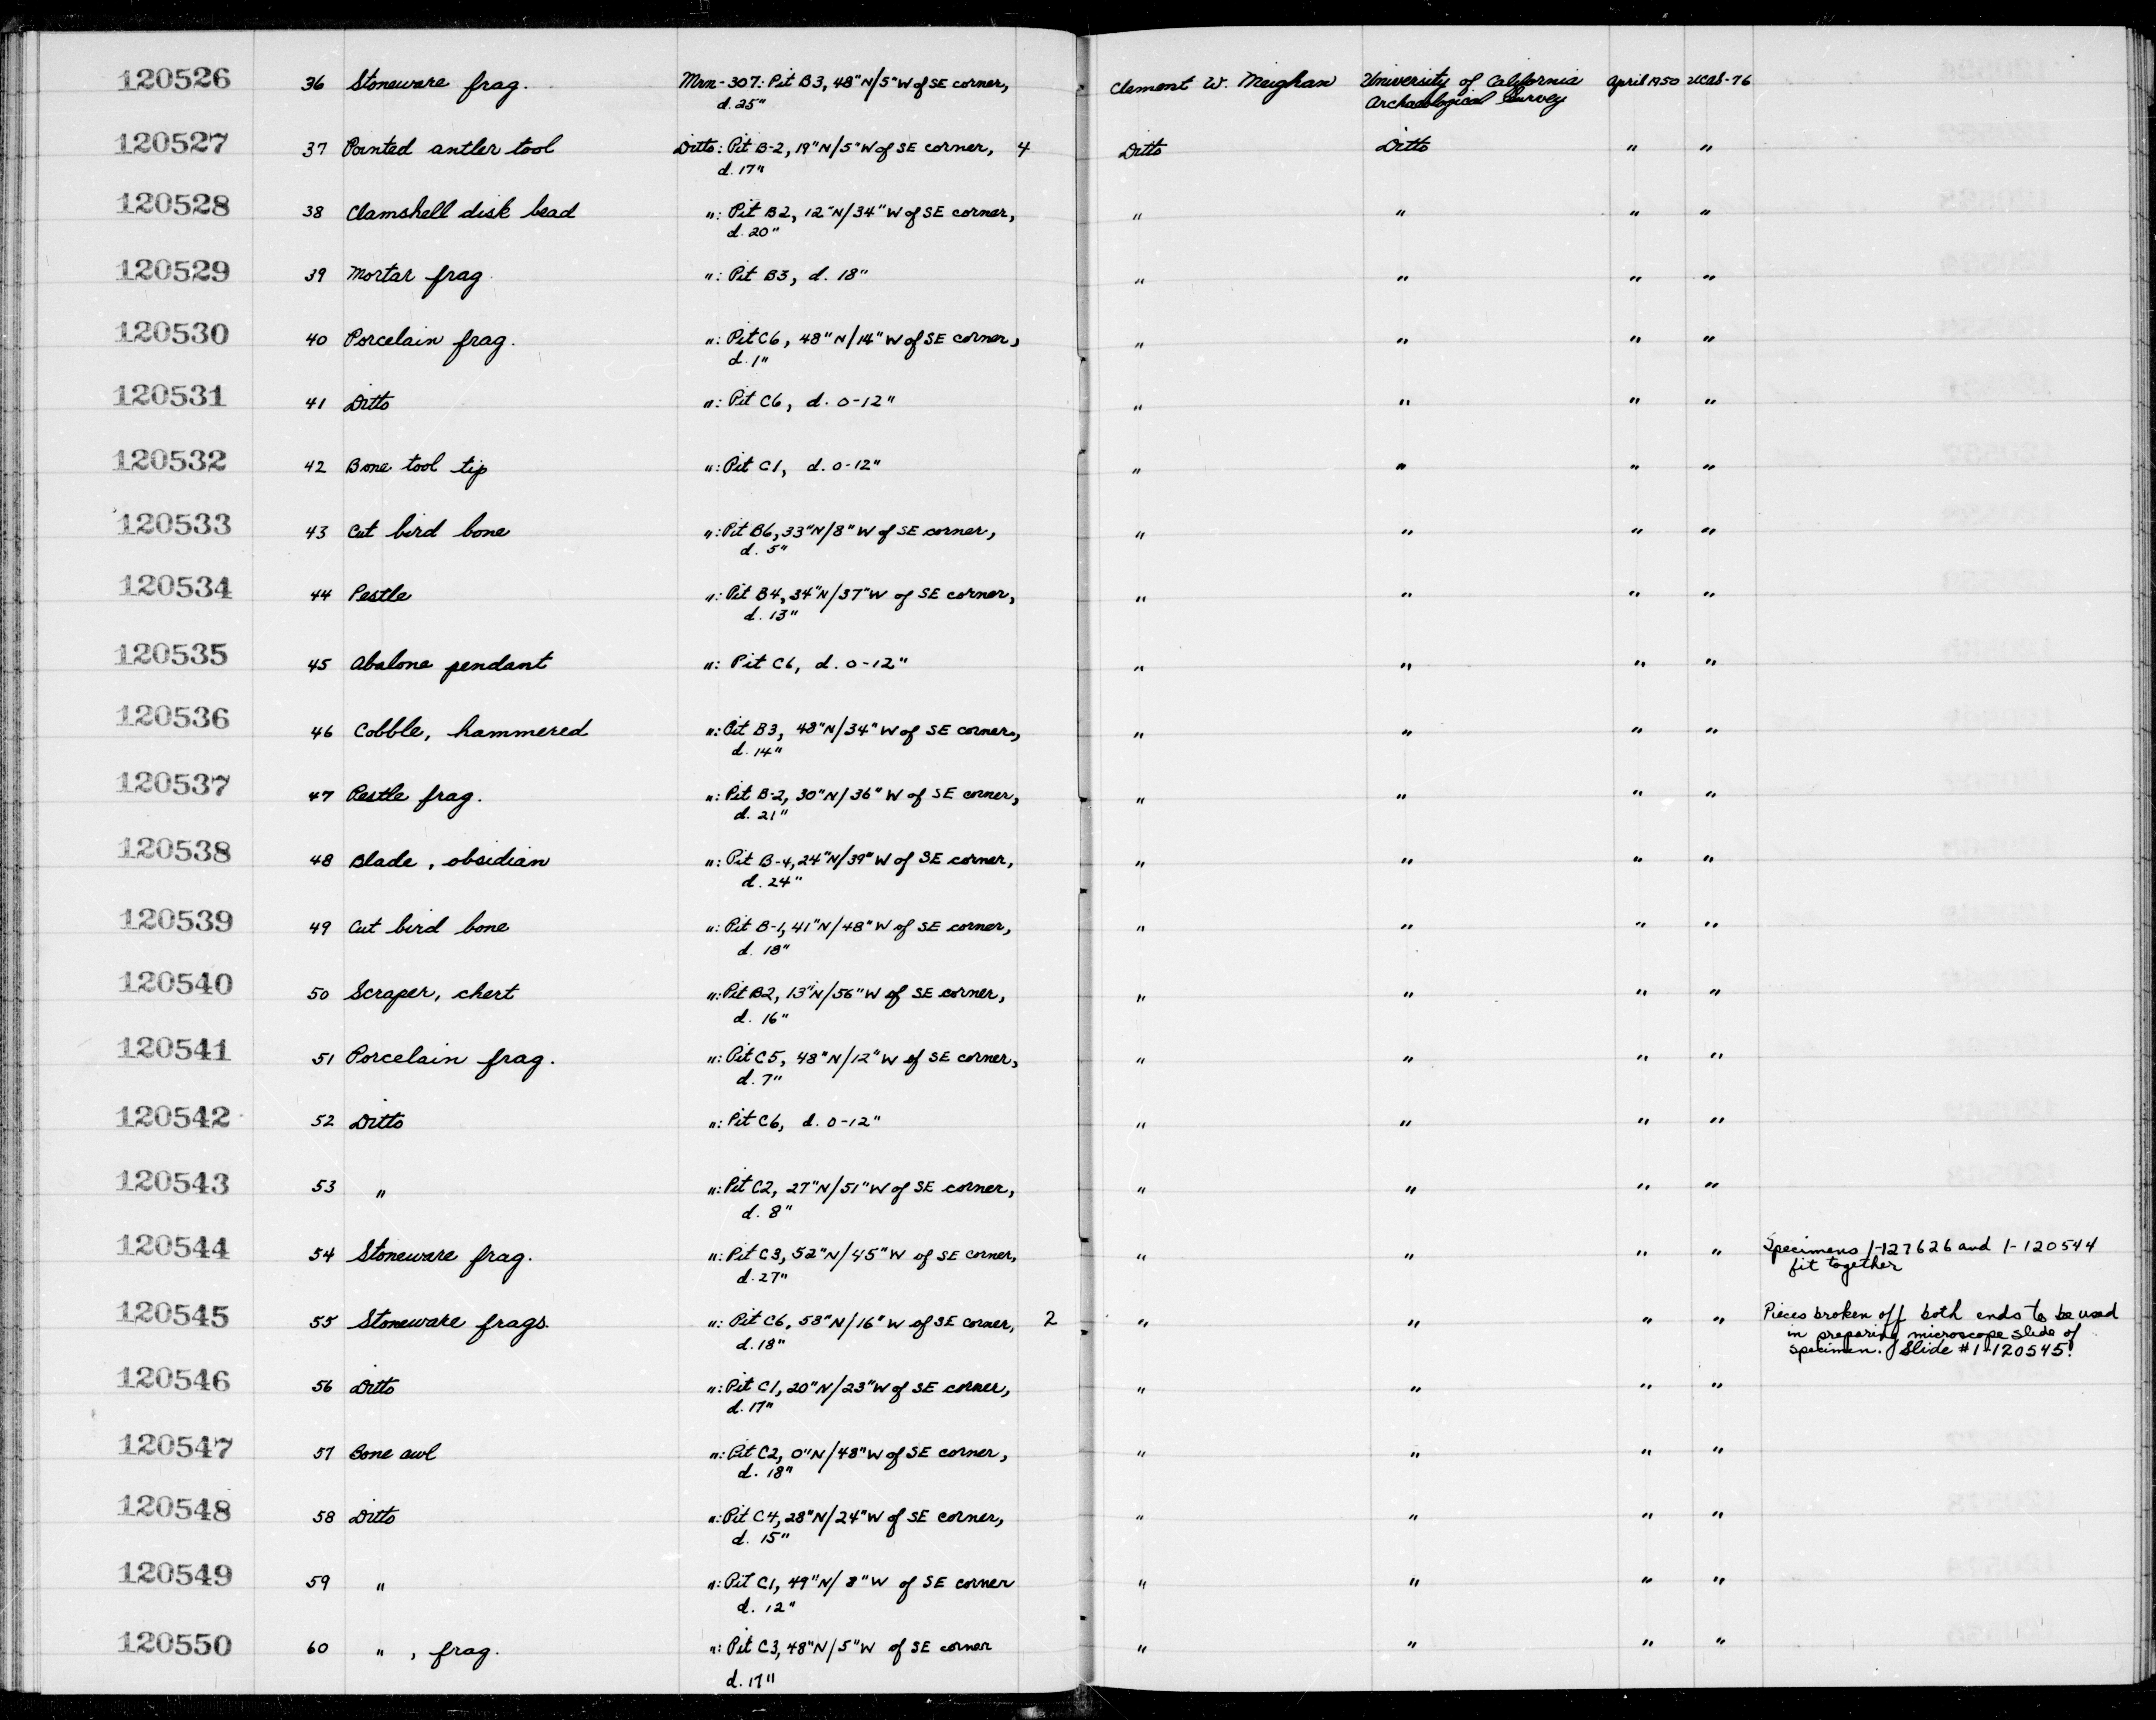 120526 36 Stoneware frag. Mrn-307: Pit B3, 48"N/5"W of SE corner, Clement W. Meighan University of California April 1950 UCAS-76
d. 25" Archaeological Survey
120527 37 Pointed antler tool Ditto: Pit B-2, 19"N/5"W of SE corner, 4 Ditto Ditto " "
d. 17"
120528 38 Clamshell disk bead ": Pit B2, 12"N/34"W of SE corner, " " " "
d. 20"
120529 39 Mortar frag. ": Pit B3, d. 18" " " " "
120530 40 Porcelain frag. ": Pit C6, 48"N/14"W of SE corner, " " " "
d. 1"
120531 41 Ditto ": Pit C6, d. 0-12" " " " "
120532 42 Bone tool tip ": Pit C1, d. 0-12" " " " "
120533 43 Cut bird bone ": Pit B6, 33"N/8"W of SE corner, " " " "
d. 5"
120534 44 Pestle ": Pit B4, 34"N/37"W of SE corner, " " " "
d. 13"
120535 45 Abalone pendant ": Pit C6, d. 0-12" " " " "
120536 46 Cobble, hammered ": Pit B3, 48"N/34"W of SE corner, " " " "
d. 14"
120537 47 Pestle frag. ": Pit B-2, 30"N/36"W of SE corner, " " " "
d. 21"
120538 48 Blade, obsidian ": Pit B-4, 24"N/39"W of SE corner, " " " "
d. 24"
120539 49 Cut bird bone ": Pit B-1, 41"N/48"W of SE corner, " " " "
d. 18"
120540 50 Scraper, chert ": Pit B2, 13"N/56"W of SE corner, " " " "
d. 16"
120541 51 Porcelain frag. ": Pit C5, 48"N/12"W of SE corner, " " " "
d. 7"
120542 52 Ditto ": Pit C6, d. 0-12" " " " "
120543 53 " ": Pit C2, 27"N/51"W of SE corner, " " " "
d. 8"
120544 54 Stoneware frag. ": Pit C3, 52"N/45"W of SE corner, " " " " Specimens 1-127626 and 1-120544
d. 27" fit together
120545 55 Stoneware frags. ": Pit C6, 58"N/16"W of SE corner, 2 " " " " Pieces broken off both ends to be used
d. 18" in preparing microscope slide of
specimen. Slide #1-120545.
120546 56 Ditto ": Pit C1, 20"N/23"W of SE corner, " " " "
d. 17"
120547 57 Bone awl ": Pit C2, 0"N/48"W of SE corner, " " " "
d. 18"
120548 58 Ditto ": Pit C4, 28"N/24"W of SE corner, " " " "
d. 15"
120549 59 " ": Pit C1, 49"N/8"W of SE corner " " " "
d. 12"
120550 60 ", frag. ": Pit C3, 48"N/5"W of SE corner " " " "
d. 17"